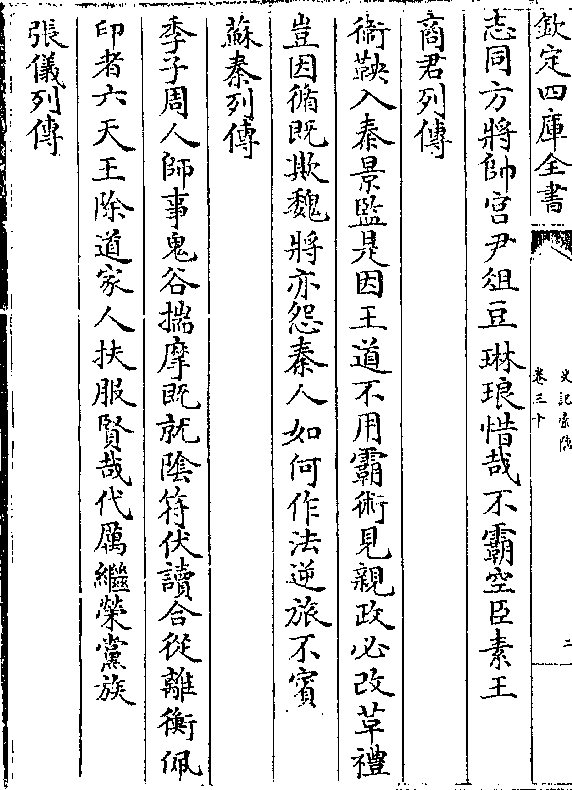 欽定四庫全書
史記索隱
卷三十
二
志同方將帥宫尹俎豆琳琅惜哉不霸空臣素王
商君列傳
衞鞅入秦景監是因王道不用霸術見親政必改革禮
豈因循既欺魏將亦怨秦人如何作法逆旅不賓
蘇秦列傳
季子周人師事鬼谷揣摩既就陰符伏讀合從離衡佩
印者六天王除道家人扶服賢哉代厲繼榮黨族
張儀列傳